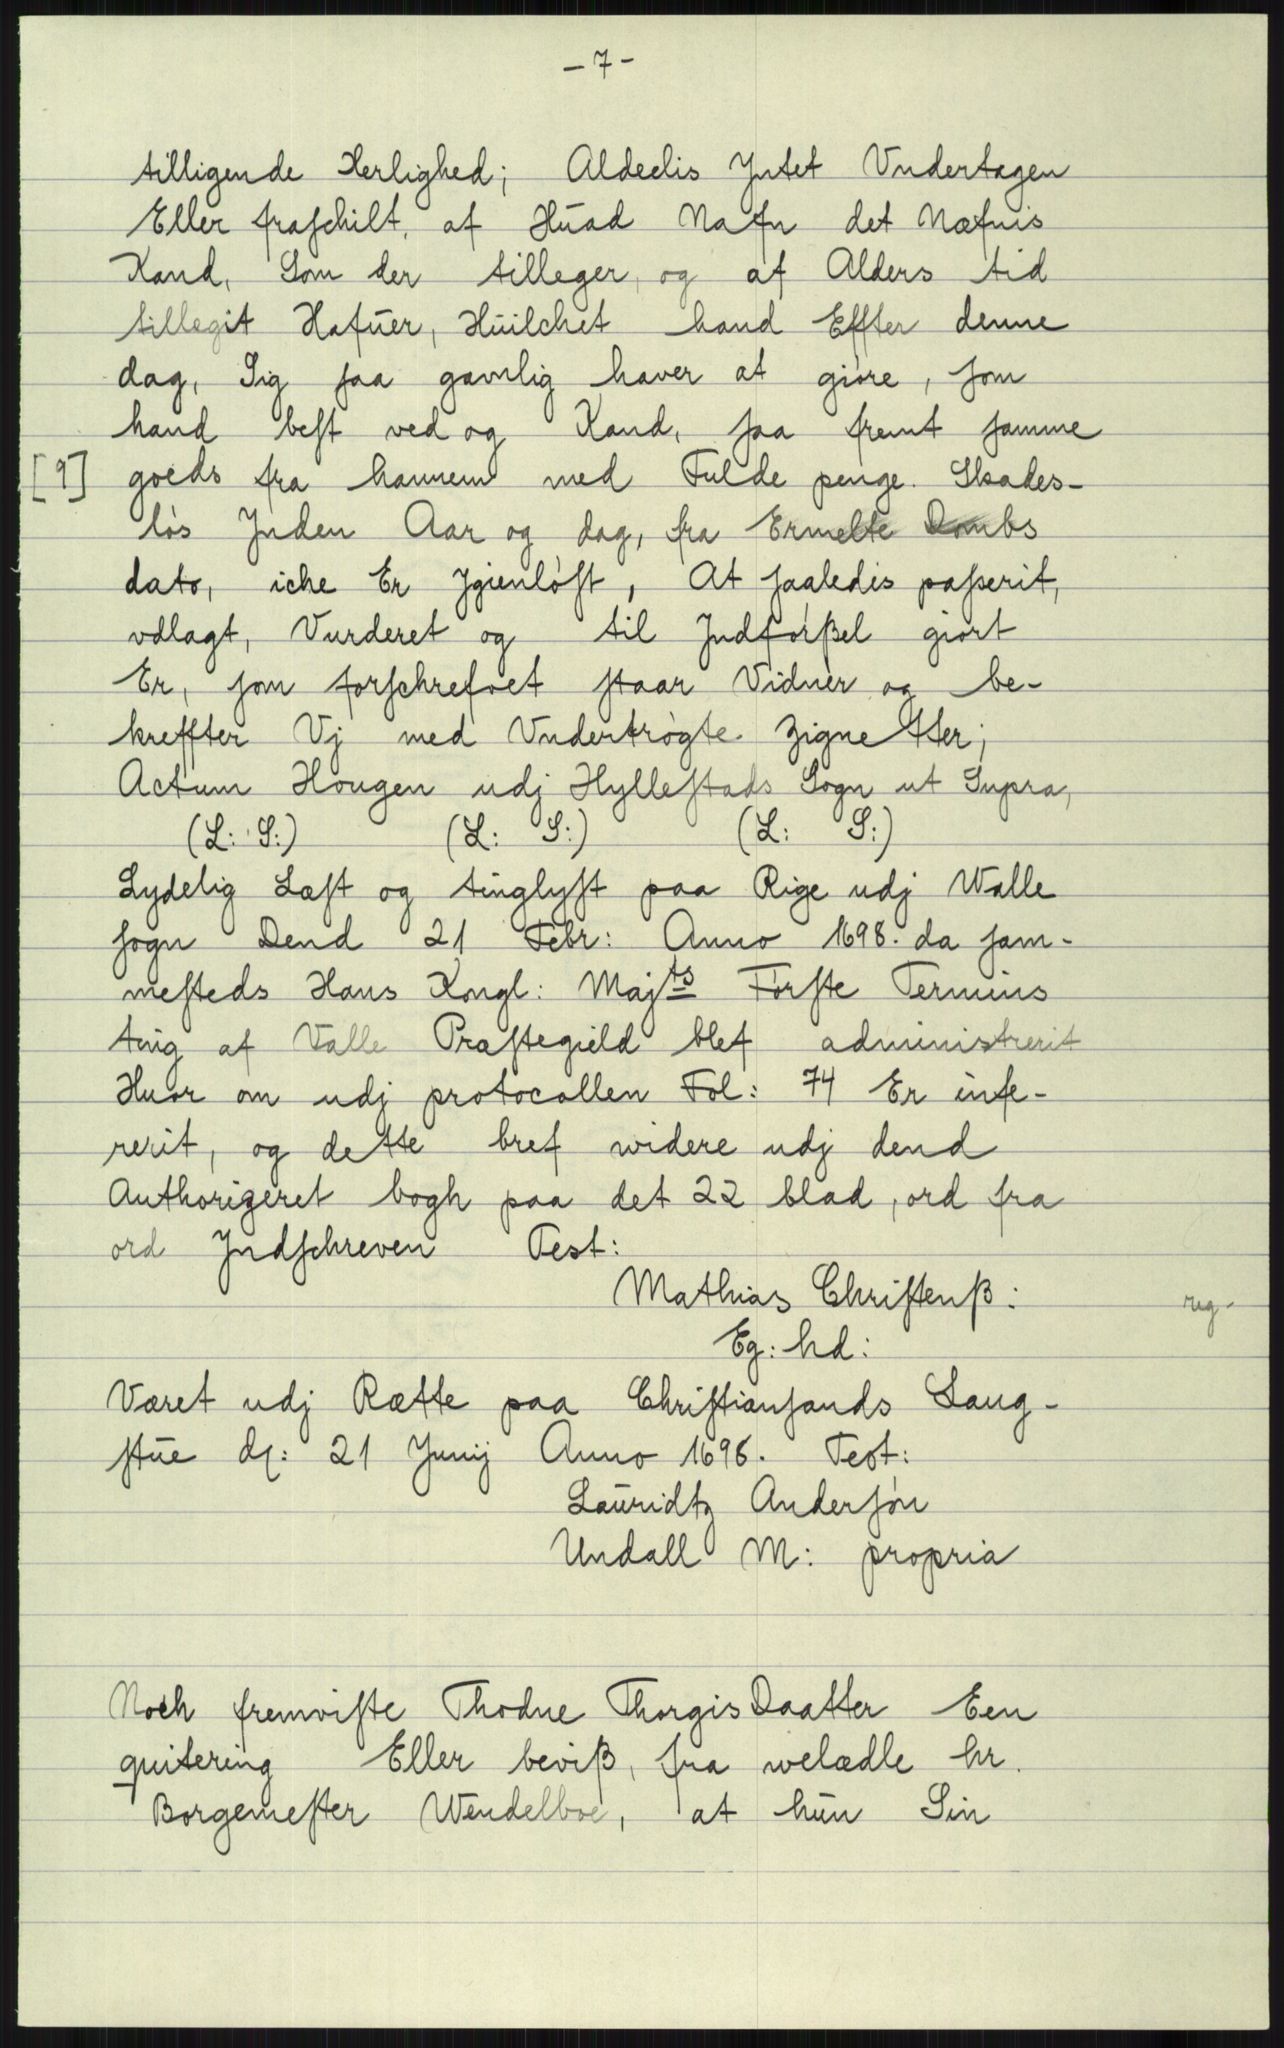 - 7 -
tilligende Herlighed; Aldeelis Yntet Vndertagen
Eller fraſchilt, af Hŭad Nafn det Næfnis
Kand, Som der tilleger, og af Alders tid
tillegit Hafŭer, Hŭilchet hand Effter denne
dag, Sig ſaa gavnlig haver at giöre, ſom
hand beſt ved og Kand, ſaa fremt ſamme
[9] goeds fra hannem med Fulde penge. Skades-
lös Ynden Aar og dag, fra Ermelte Dombs
dato, iche Er Ygienlöſt, At ſaaledis paſserit,
vdlagt, Vurderet og til Jndförßel giort
Er, ſom forſchrefvet ſtaar Vidner og be-
kreffter Vj med Vndertrögte Zignetter;
Actum Hougen udj Hylleſtads Sogn ut Supra,
(L: S:) (L: S:) (L: S:)
Lydelig Læſt og tinglyſt paa Rige udj Walle
ſogn Dend 21 Febr: Anno 1698. da ſam-
meſteds Hans Kongl: Majts Förſte Termins
ting af Valle Præſtegield blef administrerit
Huor om udj protocollen Fol: 74 Er inſe-
rerit, og dette bref widere udj dend
Authorizeret bogh paa det 22 blad, ord fra
ord Yndſchreven Test:
Mathias Chriſtenß:
reg-
Eg: hd:
Været udj Rætte paa Chriſtianſands Laug-
ſtŭe d: 21 Junij Anno 1698. Test:
Laŭridtz Anderſön
Undall M: propria
Noch fremviſte Thodne ThorgisDaatter Een
quitering Eller beviß, fra welædle hr.
Borgemeſter Wendelboe, at hŭn Sin